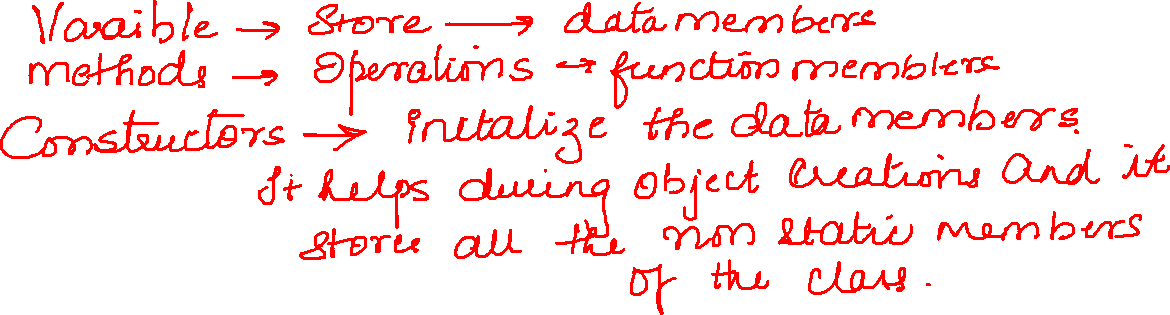 Varaible → Store → data members
methods → Operations → function members
Constructors → initalize the data members.
It helps during object creations and it
stores all the non static members
of the class.